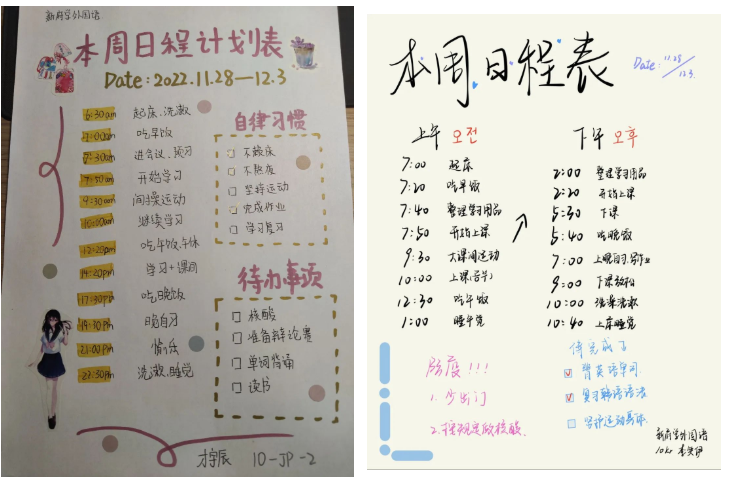 新府学外国语
本周日程计划表
Date:2022.11.28—12.3
6:30am 起床、洗漱
7:00am 吃早饭
7:30am 进会议、预习
7:50am 开始学习
9:30am 间操运动
继续学习
12:20pm 吃午饭、午休
14:20pm 学习+课间
17:30pm 吃晚饭
19:30pm 晚自习
21:00pm
22:30pm 洗漱、睡觉
自律习惯
不赖床
不熬夜
坚持运动
完成作业
学习复习
待办事项
核酸
准备辩论赛
单词背诵
读书
10-JP-2
本周日程表
Date: 11.28/12.3.
上午 오전
7:00 起床
7:20 吃早饭
7:40 整理学习用品
7:50 开始上课
9:30 大课间运动
10:00 上课(合羊)
12:30 吃午饭
1:00 睡午觉
下午 오후
2:00 整理学习用品
2:20 开始上课
5:30 下课
5:40 吃晚饭
7:00 上晚自习、写作业
9:00 下课放松
10:00 洗澡洗漱
10:40 上床睡觉
防疫!!!
1. 少出门
2. 按规定做核酸.
待完成了
背英语单词.
复习韩语语法
坚持运动
新府学外国语
10kr